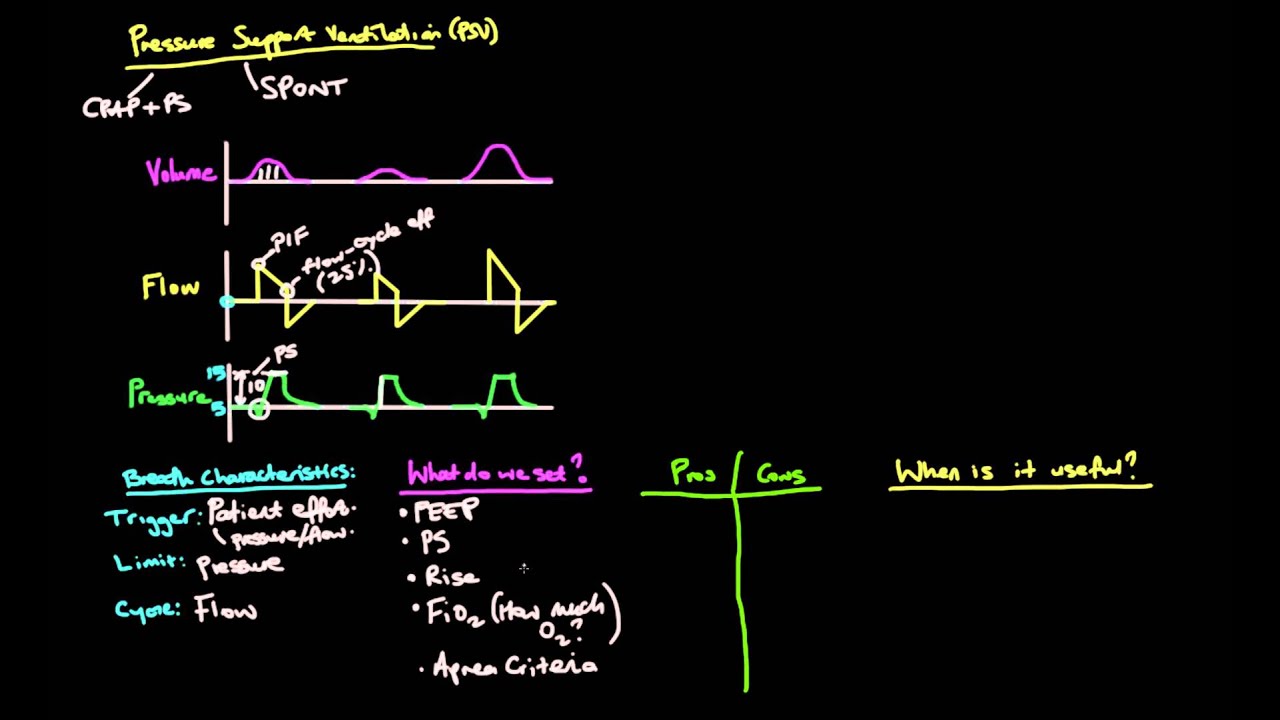 Pressure Support Ventilation (PSV)
CPAP+PS
SPONT
Volume
PIF
flow-cycle off
(25%)
Flow
PS
15
10
Pressure
5
Breath Characteristics:
Trigger: Patient effort.
pressure/flow.
Limit: Pressure
Cycle: Flow
What do we set?
• PEEP
• PS
• Rise
• FiO2 (How much
O2?)
• Apnea Criteria
Pros / Cons
When is it useful?